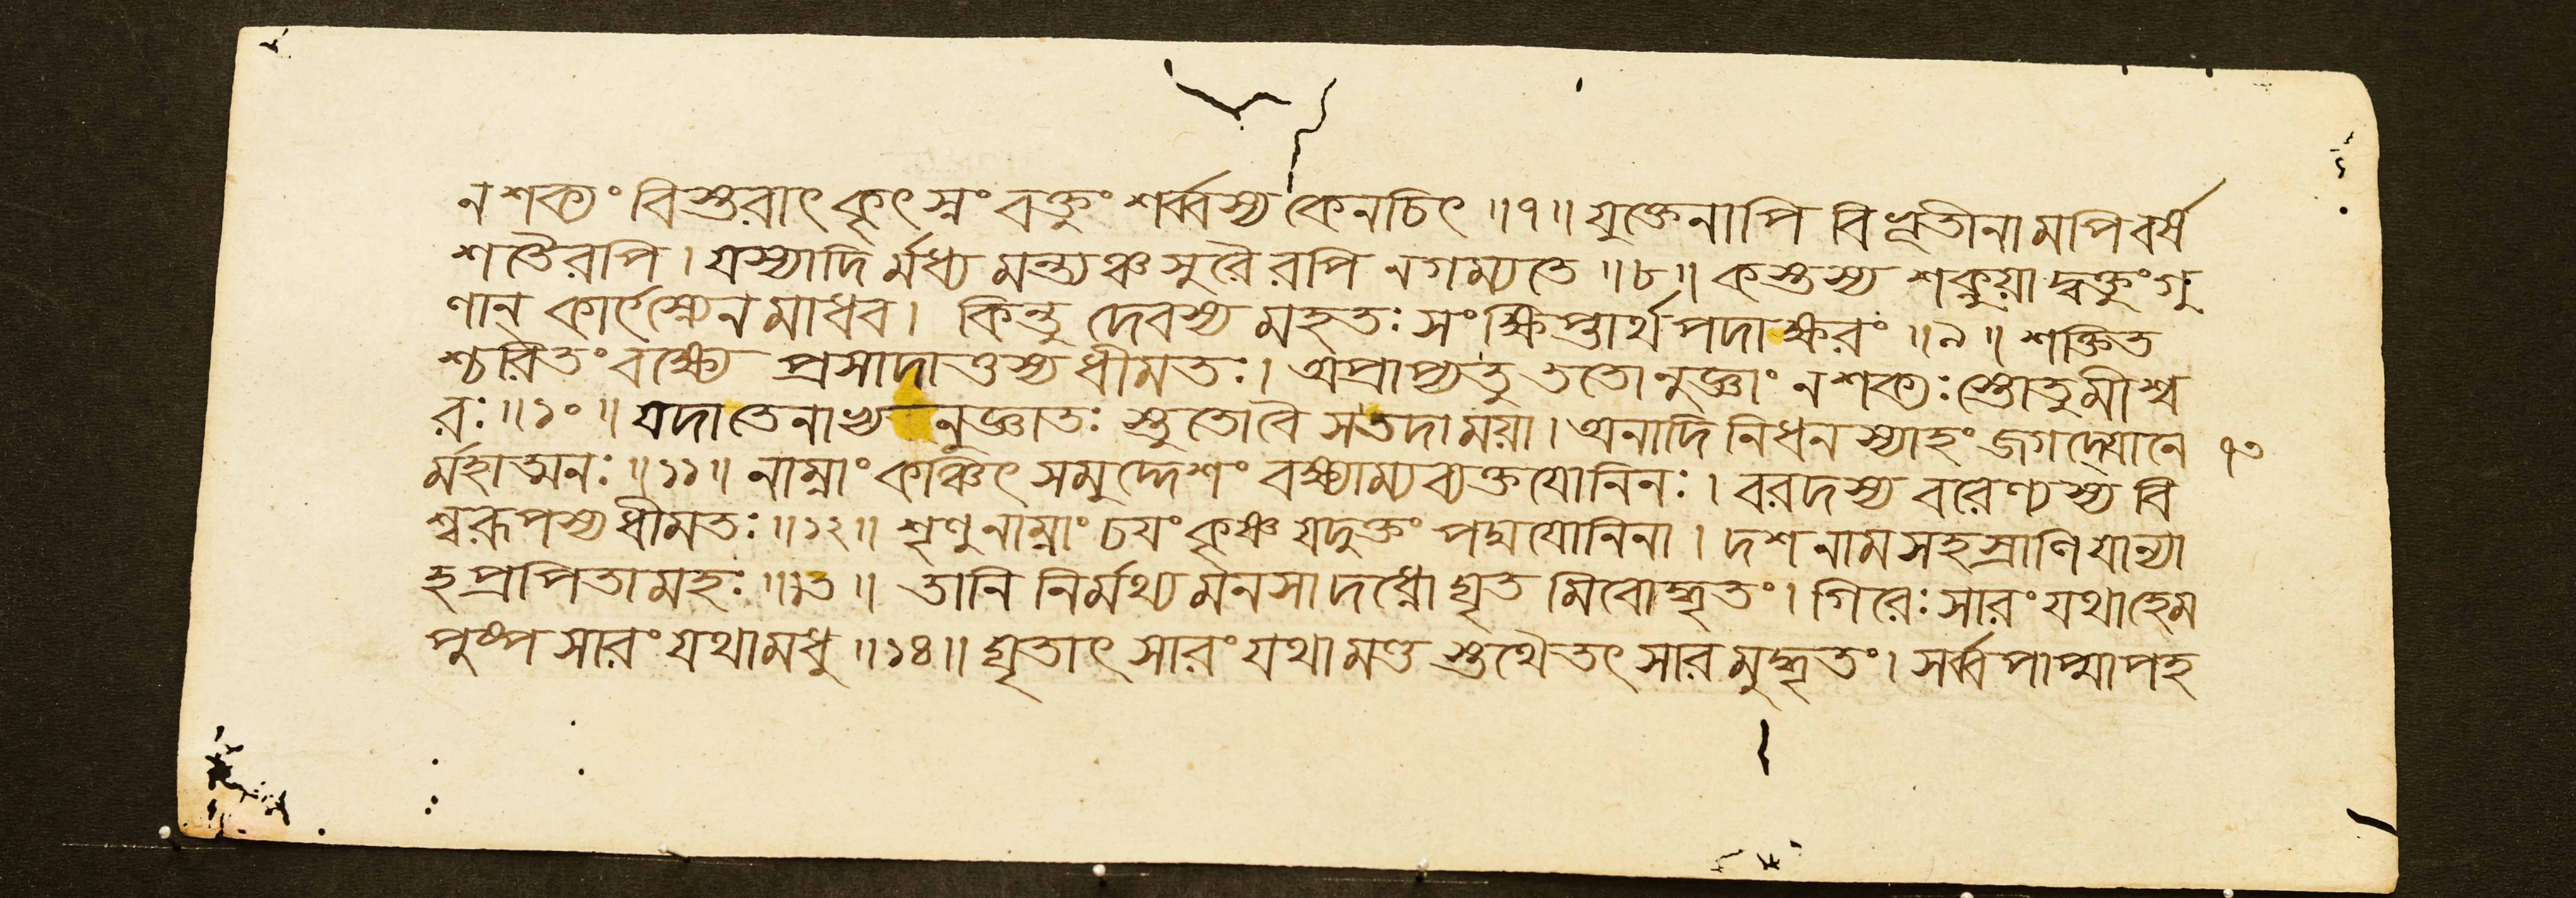 ন শক্যং বিস্তরাৎ কৃৎস্নং বক্তুং শর্ব্বস্য কেনচিৎ ॥৭॥ যুক্তেনাপি বিভূতীনামপি বর্ষ
শতৈরপি । যস্যাদির্মধ্যমন্ত্যঞ্চ সুরৈরপি ন গম্যতে ॥৮॥ কস্তস্য শক্নুয়াদ্বক্তুং গু
ণান্ কার্ৎস্ন্যেন মাধব । কিন্তু দেবস্য মহতঃ সংক্ষিপ্তার্থপদাক্ষরং ॥৯॥ শক্তিত
শ্চরিতং বক্ষ্যে প্রসাদাত্তস্য ধীমতঃ । অপ্রাপ্য তু ততোনুজ্ঞাং ন শক্যঃ স্তোতুমীশ্ব
রঃ ॥১০॥ যদা তেনাভ্যনুজ্ঞাতঃ স্তুতো বৈ স তদা ময়া । অনাদিনিধনস্যাহং জগদ্যোনে ৭৩
র্মহাত্মনঃ ॥১১॥ নাম্নাং কঞ্চিৎ সমুদ্দেশং বক্ষ্যাম্যব্যক্তযোনিনঃ । বরদস্য বরেণ্যস্য বি
শ্বরূপস্য ধীমতঃ ॥১২॥ শৃণু নাম্নাং চয়ং কৃষ্ণ যদুক্তং পদ্মযোনিনা । দশনামসহস্রাণি যান্যা
হ প্রপিতামহঃ ॥১৩॥ তানি নির্মথ্য মনসা দধ্নো ঘৃতমিবোদ্ধৃতং । গিরেঃ সারং যথা হেম
পুষ্পসারং যথা মধু ॥১৪॥ ঘৃতাৎ সারং যথা মণ্ডস্তথৈতৎ সারমুদ্ধৃতং । সর্ব্বপাপ্মাপহ